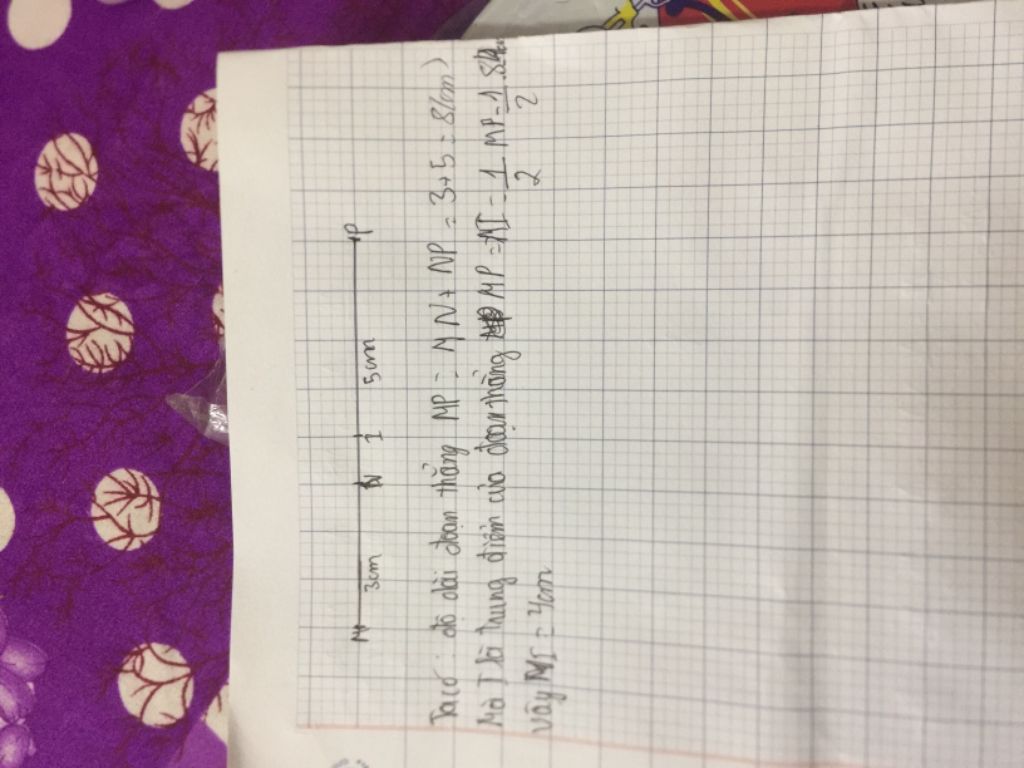 M N I P
3cm 5cm
Ta có: độ dài đoạn thẳng MP = MN + NP = 3+5 = 8(cm)
Mà I là trung điểm của đoạn thẳng MP ⇒ MI = 1/2 MP = 1/2 . 8
Vậy MI = 4cm